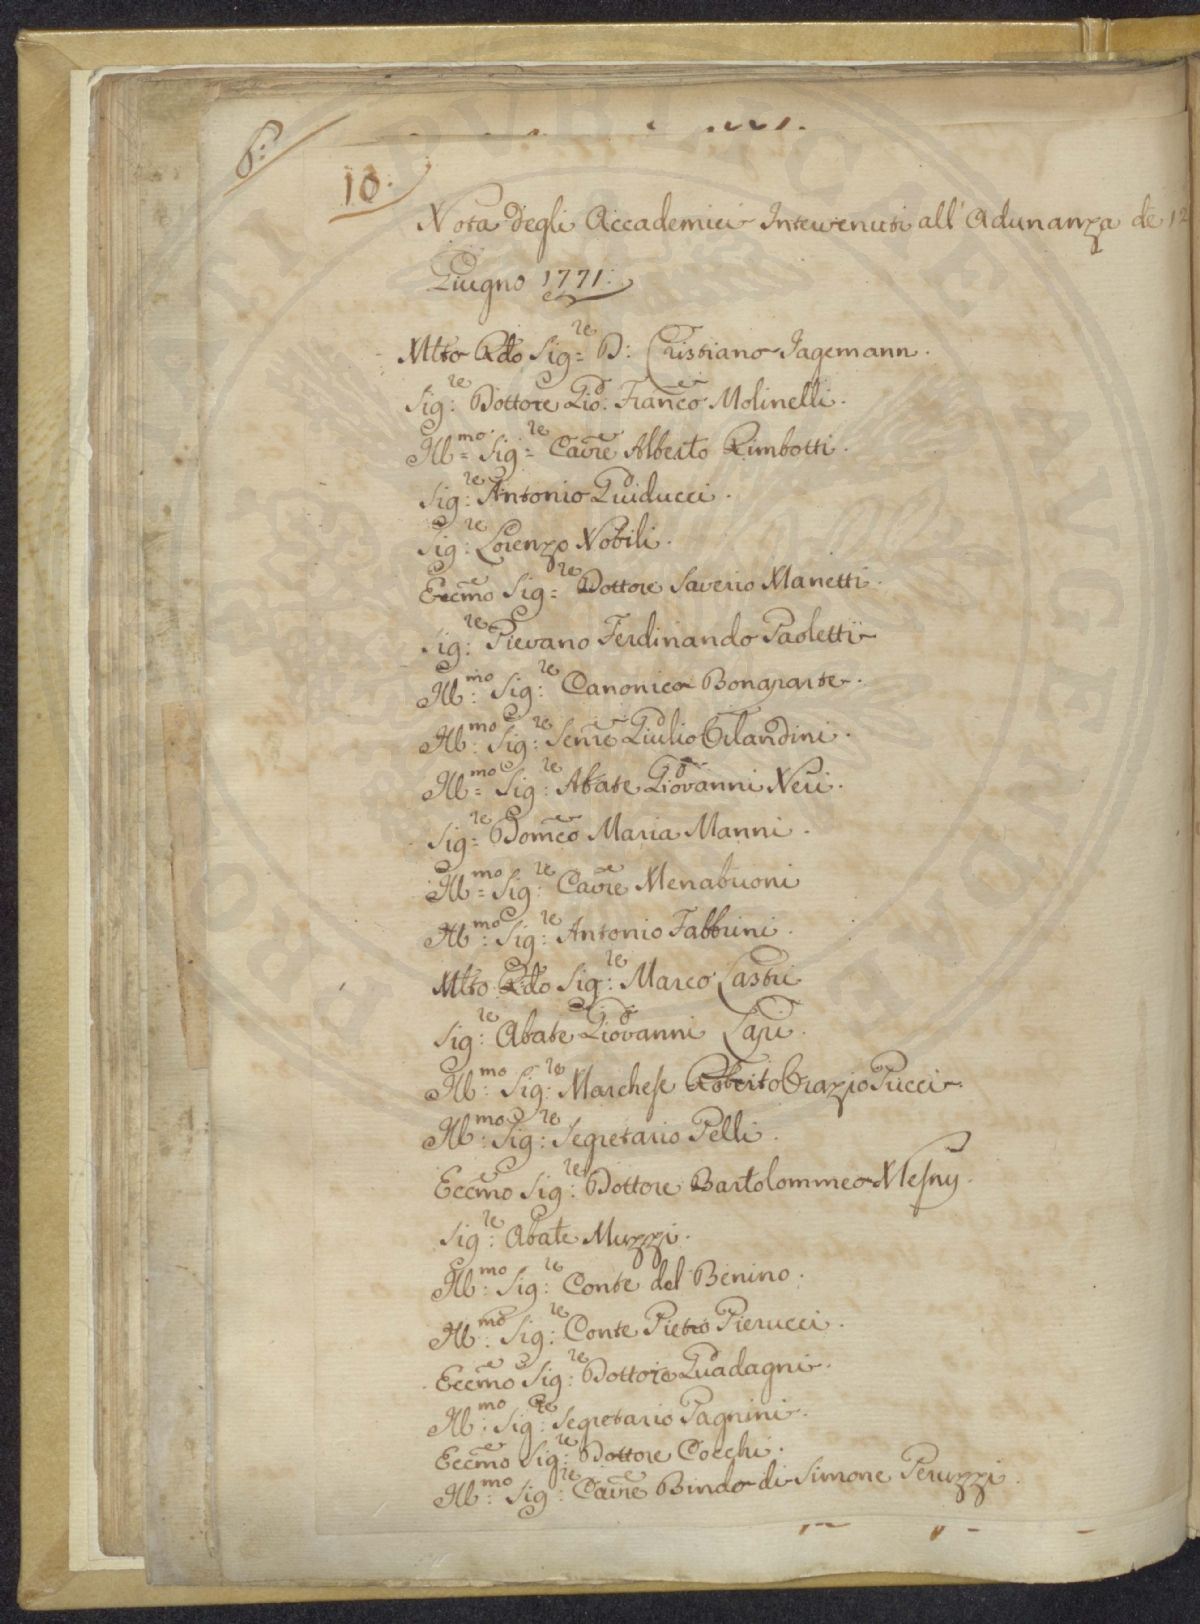 6:
10:
Nota degli Accademici Intervenuti all'Adunanza de 12
Giugno 1771:
Mlto Rdo Sig:re D: Cristiano Jagemann.
Sig:re Dottore Gio: Franco Molinelli.
Ill:mo Sig:re Cavre Alberto Rimbotti.
Sig:re Antonio Guiducci.
Sig:re Lorenzo Nobili.
Eccmo Sig:re Dottore Saverio Manetti.
Sig:re Pievano Ferdinando Paoletti
Ill:mo Sig:re Canonico Bonaparte.
Ill:mo Sig:re Senre Giulio Orlandini.
Ill:mo Sig:re Abate Giovanni Neri.
Sig:re Domco Maria Manni.
Ill:mo Sig:re Cavre Menabuoni
Ill:mo Sig:re Antonio Fabbrini.
Mlto Rdo Sig:re Marco Lastri
Sig:re Abate Giovanni Lapi.
Ill:mo Sig:re Marchese Roberto Orazio Pucci.
Ill:mo Sig:re Segretario Pelli.
Eccmo Sig:re Dottore Bartolommeo Mesny.
Sig:re Abate Muzzi.
Ill:mo Sig:re Conte del Benino.
Ill:mo Sig:re Conte Pietro Pierucci.
Eccmo Sig:re Dottore Guadagni.
Ill:mo Sig:re Segretario Pagnini.
Eccmo Sig:re Dottore Cocchi.
Ill:mo Sig:re Cavre Bindo di Simone Peruzzi.